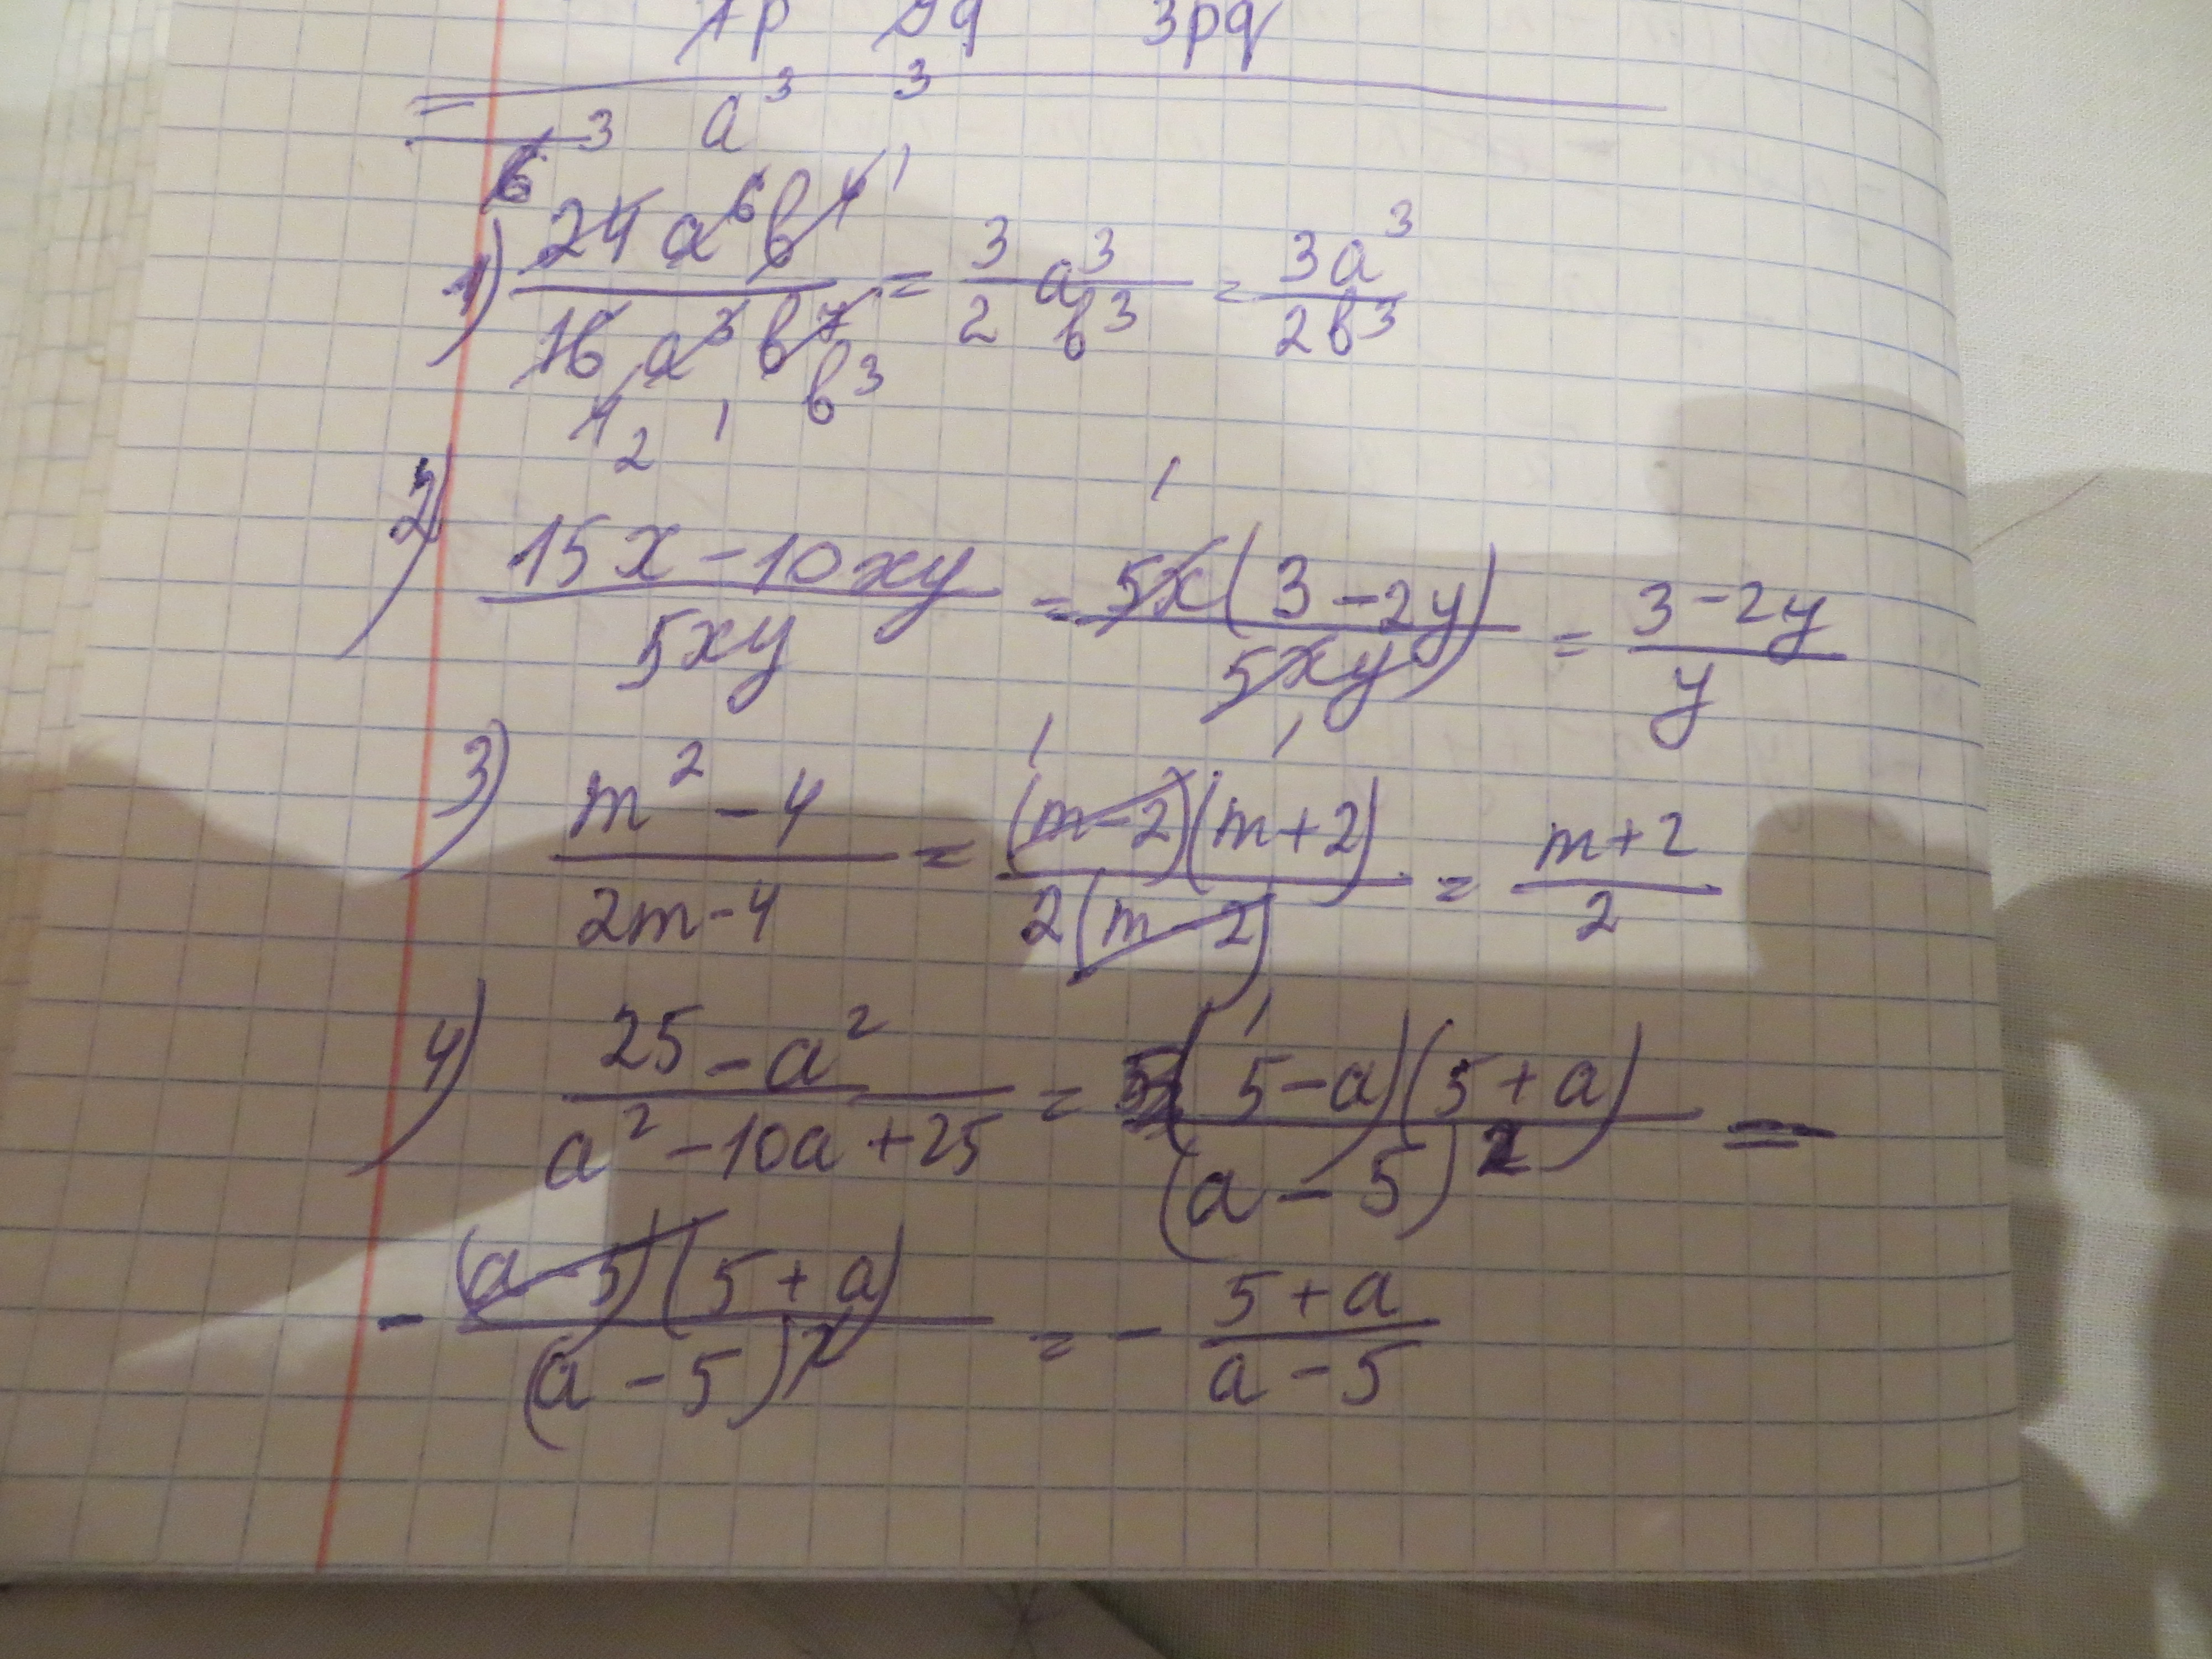 3pq
1) 24a⁶b⁴ / 16a³b⁷ = 3/2 a³/b³ = 3a³ / 2b³
2) (15x - 10xy) / 5xy = 5x(3 - 2y) / 5xy = (3 - 2y) / y
3) (m² - 4) / (2m - 4) = (m - 2)(m + 2) / 2(m - 2) = (m + 2) / 2
4) (25 - a²) / (a² - 10a + 25) = (5 - a)(5 + a) / (a - 5)² =
- (a - 5)(5 + a) / (a - 5)² = - (5 + a) / (a - 5)